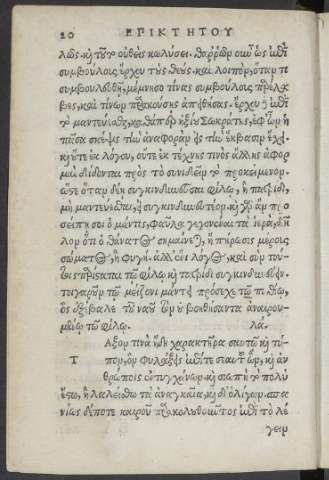 20 ΕΠΙΚΤΗΤΟΥ
λῶς, καὶ τοῦτο οὐθεὶς κωλύσει. θαρρῶν οὖν ὡς ἐπὶ
συμβούλους ἔρχου τοὺς θεούς. καὶ λοιπὸν, ὅταν τι
συμβουλευθῇ, μέμνησο τίνας συμβούλους παρέλα
βες, καὶ τίνων παρακούσεις ἀπειθήσας. ἔρχου δὲ ἐπὶ
τὸ μαντεύεσθαι, καθάπερ ἠξίου Σωκράτης, ἐφ' ὧν ἡ
πᾶσα σκέψις τὴν ἀναφορὰν εἰς τὴν ἔκβασιν ἔχει.
καὶ οὔτε ἐκ λόγου, οὔτε ἐκ τέχνης τινὸς ἄλλης ἀφορ
μαὶ δίδονται πρὸς τὸ συνιδεῖν τὸ προκείμενον.
ὥστε ὅταν δέῃ συγκινδυνεῦσαι φίλῳ, ἢ πατρίδι,
μὴ μαντεύεσθαι, εἰ συγκινδυνευτέον. καὶ γὰρ ἂν προ
είπῃ σοι ὁ μάντις, φαῦλα γεγονέναι τὰ ἱερὰ, δῆ
λον ὅτι ὁ θάνατος σημαίνεται, ἢ πήρωσις μέρους
σώματος, ἢ φυγή. ἀλλ' αἱρεῖ λόγος, καὶ σὺν τού
τοις παρίστασθαι τῷ φίλῳ, καὶ πατρίδι συγκινδυνεύειν.
τοιγαροῦν τῷ μείζονι μάντει πρόσεχε τῷ πυθίῳ,
ὃς ἐξέβαλε τοῦ ναοῦ τὸν οὐ βοηθήσαντα ἀναιρου
μένῳ τῷ φίλῳ. λα.
Τ Αξον τινὰ ἤδη χαρακτῆρα σαυτῷ καὶ τύ
πον, ὃν φυλάξεις ἐπί τε σεαυτοῦ ὢν, καὶ ἀν
θρώποις ἐντυγχάνων. καὶ σιωπὴ τὸ πολὺ
ἔστω, ἢ λαλείσθω τὰ ἀναγκαῖα, καὶ δι' ὀλίγων. σπα
νίως δέ ποτε καιροῦ παρακαλοῦντος ἐπὶ τὸ λέ
γειν